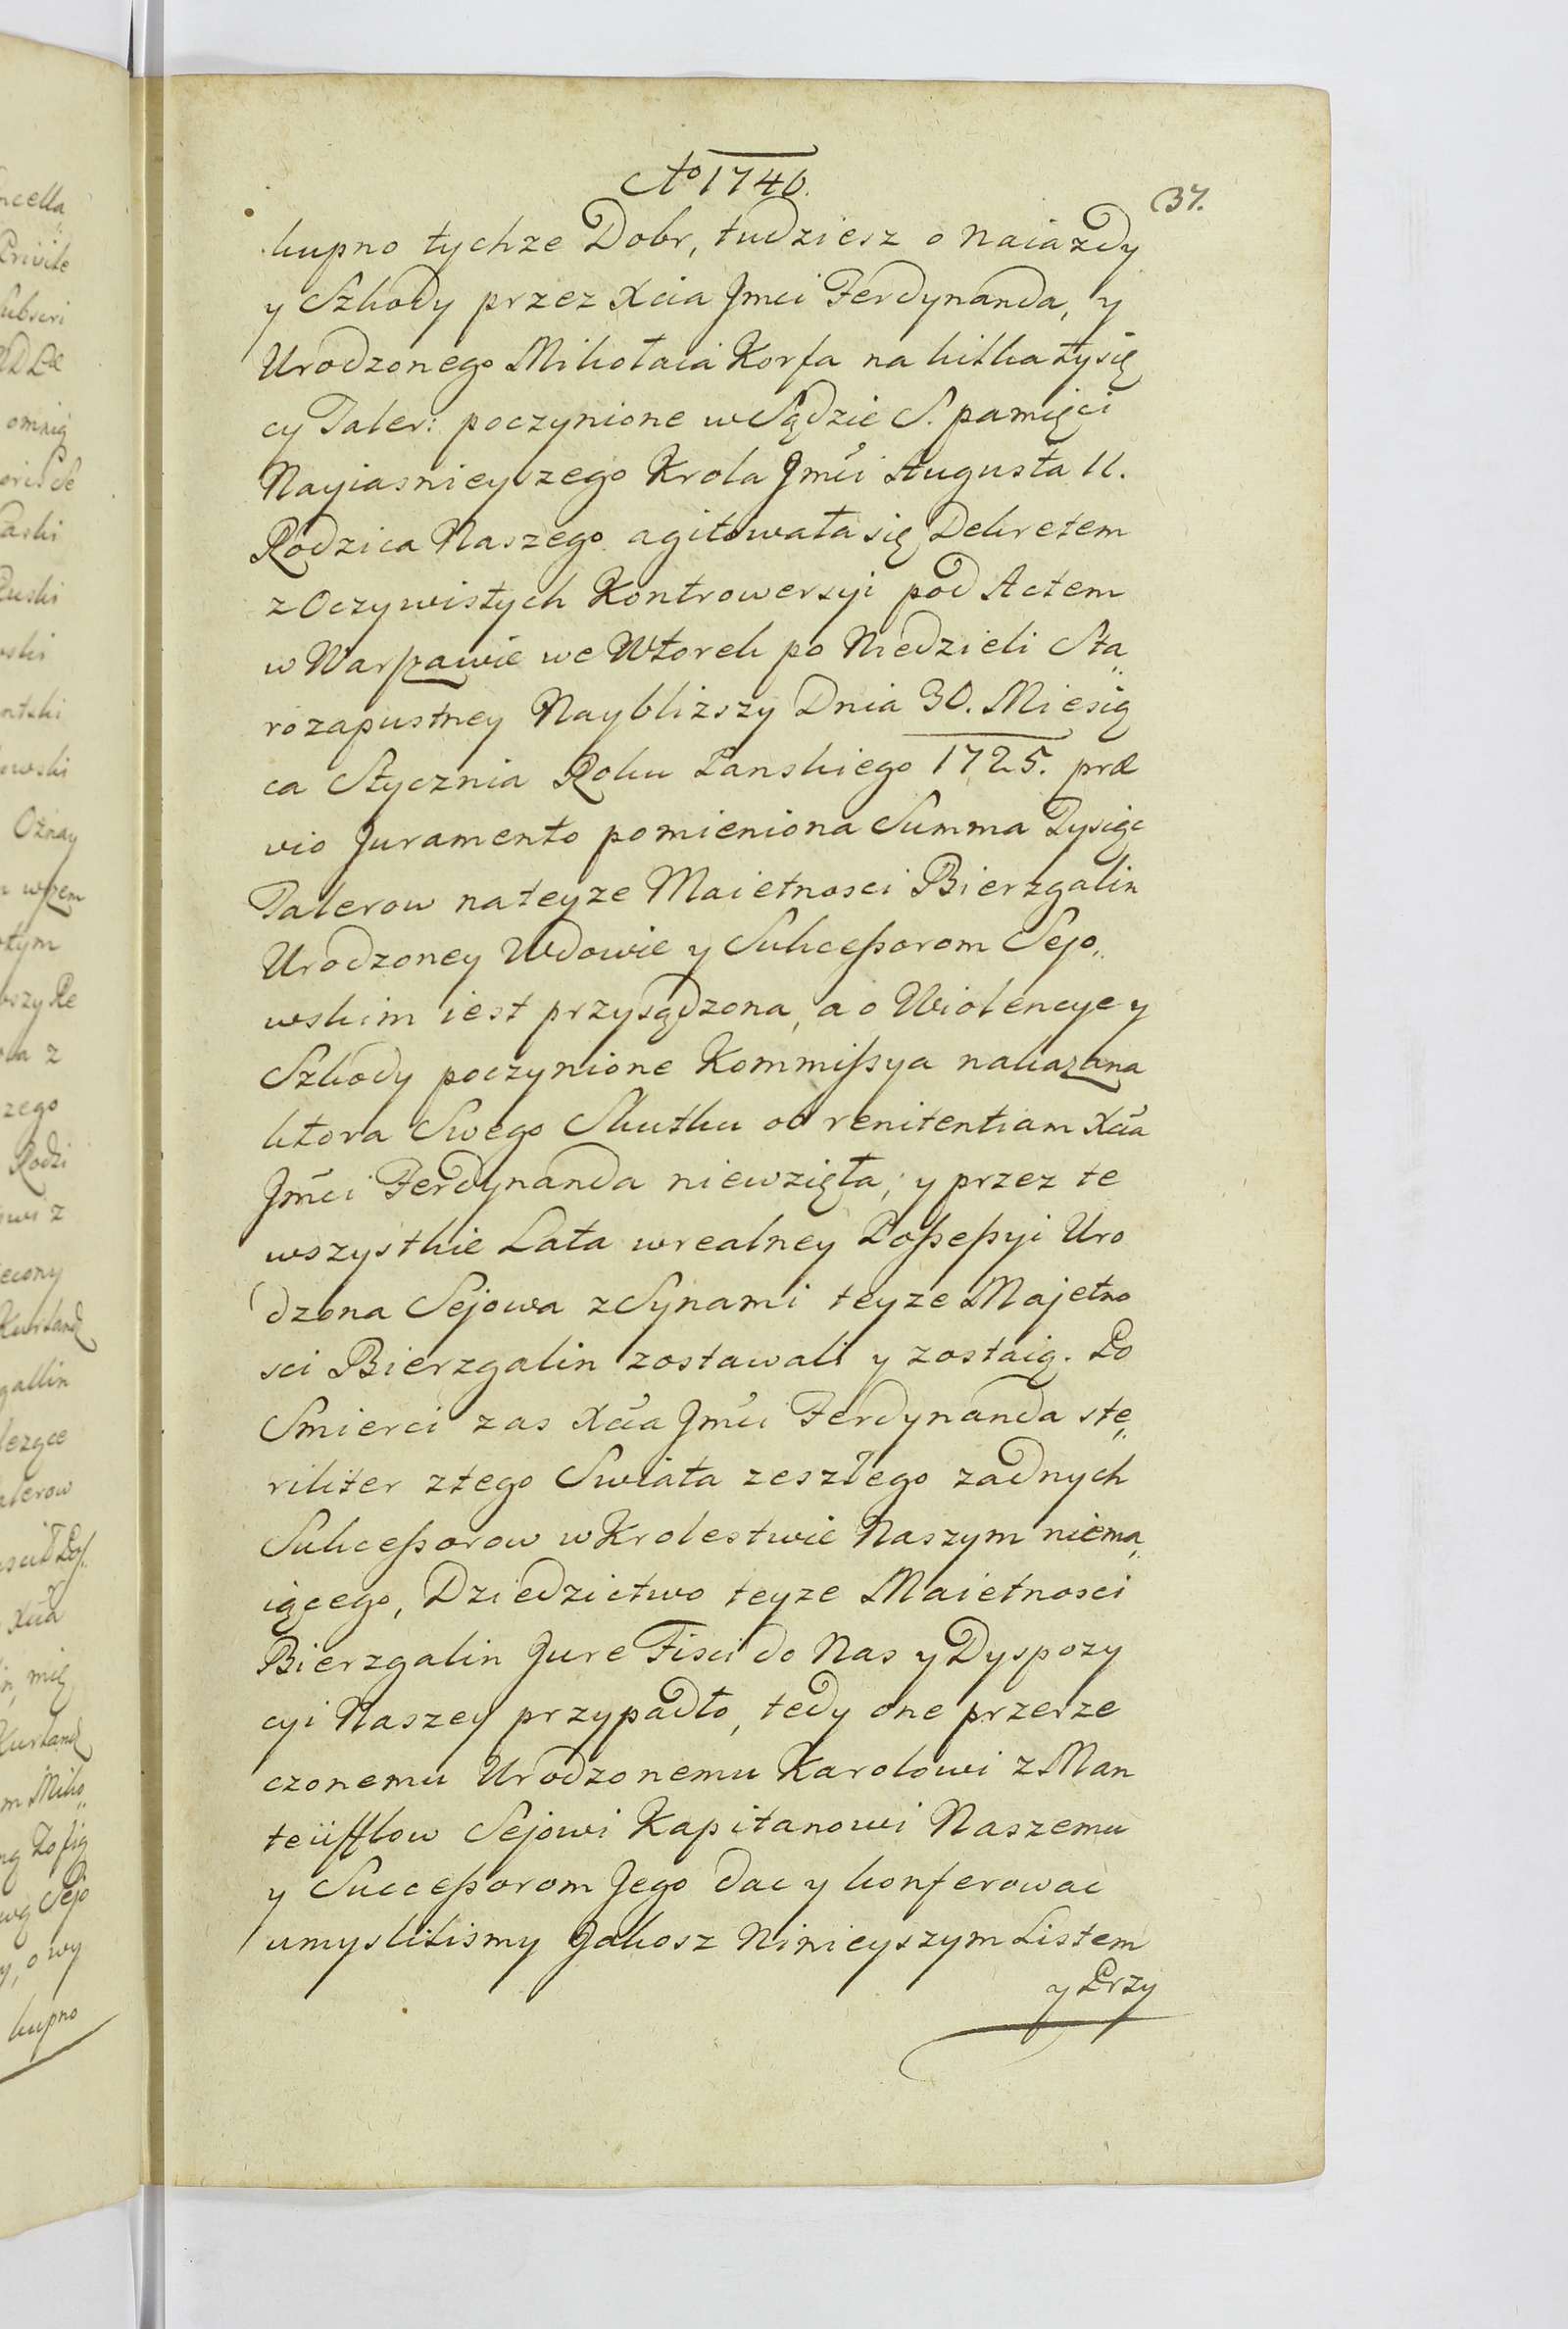 Ao 1740.
37.
kupno tychze Dobr, tudziesz o naiazdy
y Szkody przez Xcia Jmci Ferdynanda, y
Urodzonego Mikołaia Korfa na kilka tysię
cy Taler: poczynione w Sądzie S. pamięci
Nayiasnieyszego Krola Jmci Augusta II.
Rodzica Naszego agitowała się Dekretem
z Oczywistych Kontrowersyi pod Actem
w Warszawie we Wtorek po Niedzieli Sta„
rozapustney Naybliższy Dnia 30. Miesią
ca Stycznia Roku Panskiego 1725. præ
vio Juramento pomieniona Summa Tysiąc
Talerow na teyze Maietnosci Bierzgalin
Urodzoney Wdowie y Sukceßorom Sejo„
wskim iest przysądzona, a o Wiolencye y
Szkody poczynione Kommißya nakazana
ktora Swego Skutku ob renitentiam Xcia
Jmci Ferdynanda niewzięła, y przez te
wszystkie Lata w realney Poßeßyi Uro
dzona Sejowa z Synami teyze Majetno
sci Bierzgalin zostawali y zostaią. Po
Smierci zas Xcia Jmci Ferdynanda ste„
riliter z tego Swiata zeszłego zadnych
Sukceßorow w Krolestwie Naszym niema„
iącego, Dziedzictwo teyze Maietnosci
Bierzgalin Jure Fisci do Nas y Dyspozy
cyi Naszey przypadło, tedy one przerze
czonemu Urodzonemu Karolowi z Man
teüfflow Sejowi Kapitanowi Naszemu
y Succeßorom Jego dac y konferowac
umyslilismy Jakosz Ninieyszym Listem
y Przy